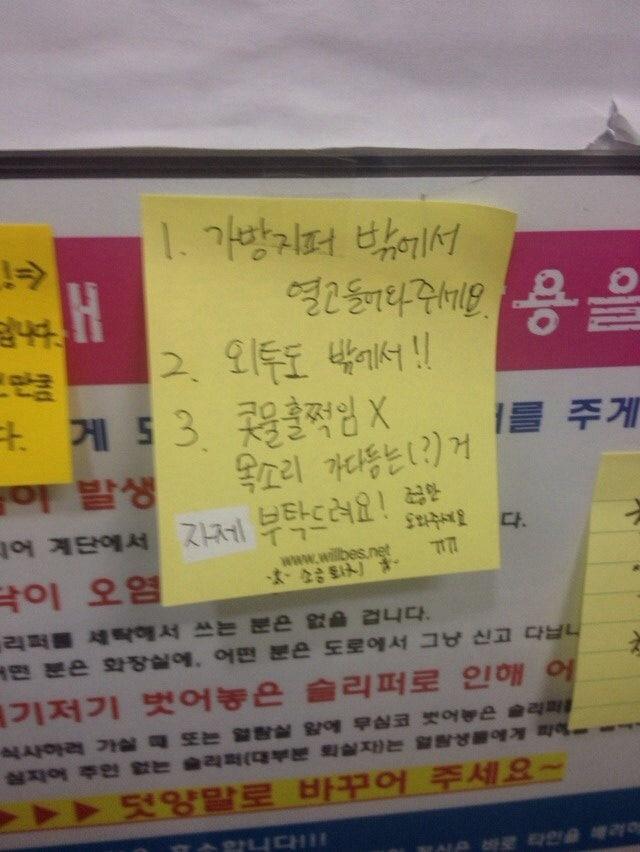 1. 가방지퍼 밖에서
열고들어와주세요.
2. 외투도 밖에서!!
3. 콧물훌쩍임 X
목소리 가다듬는(?) 거
자제 부탁드려요!
조금만
도와주세요
ㅠㅠ
www.willbes.net
!⇒
입니다.
만큼
다.
용을
게
를 주게
이 발생
다.
계단에서
이 오염
리퍼를 세탁해서 쓰는 분은 없을 겁니다.
떤 분은 화장실에, 어떤 분은 도로에서 그냥 신고 다닙니
여기저기 벗어놓은 슬리퍼로 인해 어
식사하러 가실 때 또는 열람실 앞에 무심코 벗어놓은 슬리퍼
심지어 주인 없는 슬리퍼(대부분 퇴실자)는 열람생들에게 피해
▶▶▶ 덧양말로 바꾸어 주세요~